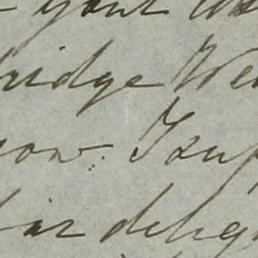 your
ridge We
now. I sup
fair delig